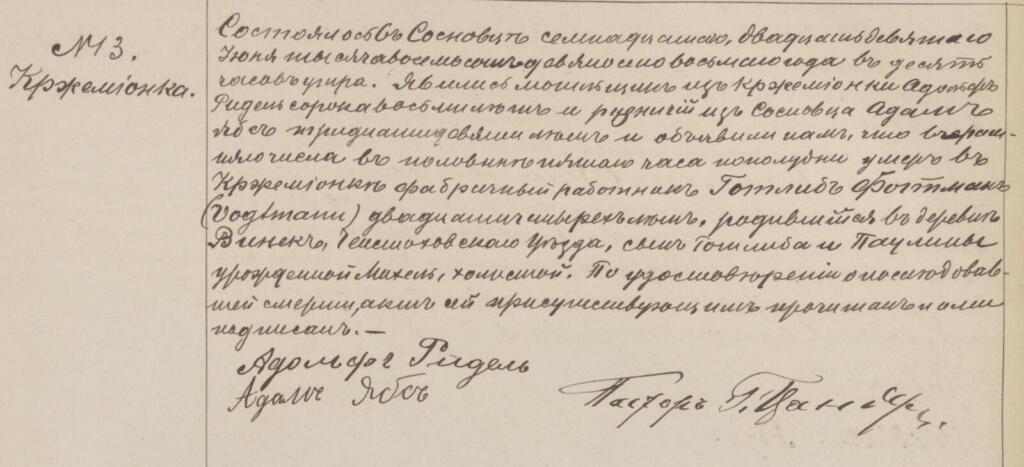 №13.
Кржеміонка.
Состоялось въ Сосновцѣ семнадцатаго, двадцать девятаго
Іюня тысяча восемьсотъ девяносто восьмаго года въ десять
часовъ утра. Явились изъ Кржеміонки Адольфъ
Ридель сорока восьми лѣтъ и изъ Сосновца Адамъ
Ябсъ тридцати девяти лѣтъ и объявили намъ, что вчераш-
няго числа въ половинѣ пятаго часа пополудни умеръ въ
Кржеміонкѣ фабричный работникъ Готлибъ Фогтманъ
(Vogtmann) двадцати четырехъ лѣтъ, родившійся въ деревнѣ
Ченстоховскаго уѣзда, сынъ Готлиба и Паулины
урожденной Михель, холостой. По удостовѣреніи о послѣдовав-
шей смерти, актъ сей присутствующимъ прочитанъ и ами
подписанъ. —
Адольфъ Ридель
Адамъ Ябсъ
Пасторъ Г.